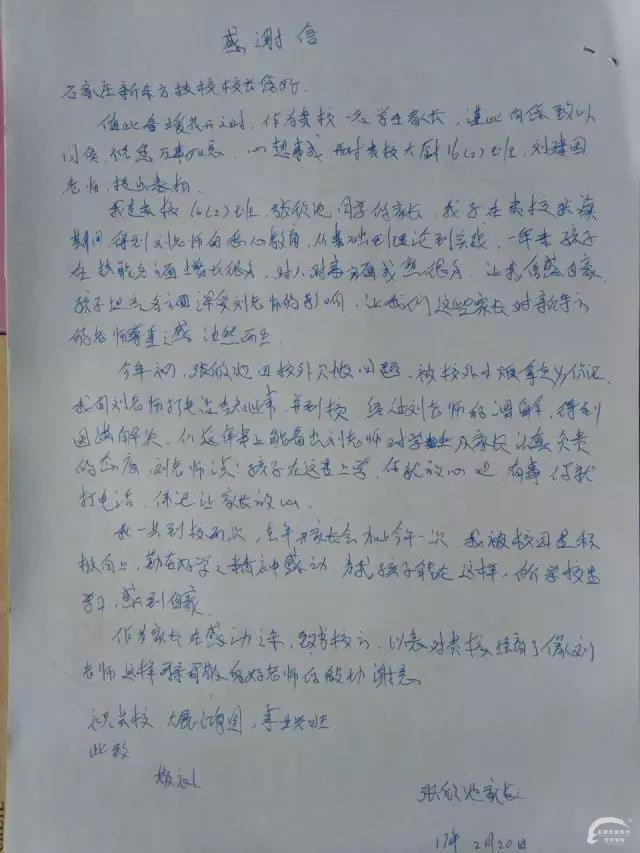 感谢信
石家庄新东方技校校长您好.
值此春暖花开之时, 作为贵校一名学生家长, 谨此向您致以
问候, 祝您万事如意, 心想事成 再对贵校大厨16(2)班, 刘建国
老师, 提出表扬.
我是贵校16(2)班, 张欣池同学的家长, 我子在贵校就读
期间, 得到刘老师的悉心教育, 从基础到理论到实践, 一年来孩子
在技能各方面增长很多, 对人对事方面成熟很多, 让我倍感自豪,
孩子各方面深受刘老师的影响, 让我们这些家长对新东方
的老师尊重之感油然而生
今年初, 张欣池因校外欠债问题, 被校外
我向刘老师打电话告知此事, 并到校, 经过刘老师的调解, 得到
圆满解决, 从这件事上能看出刘老师对学生及家长认真负责
的态度, 刘老师说: 孩子在这里上学, 你就放心吧, 有事你就
打电话, 保证让家长放心.
我一共到校两次, 去年开家长会加上今年一次, 我被校园里积
极向上, 勤奋好学之精神感动 为我孩子能在这样一所学校里
学习, 感到自豪
作为家长在感动之余, 致书校方, 以表对贵校培育了像刘
老师这样可亲可敬的好老师的殷切谢意
祝贵校 大展鸿图, 事业兴旺.
此致
敬礼
张欣池家长
17年 2月20日
石家庄新东方
烹饪学校